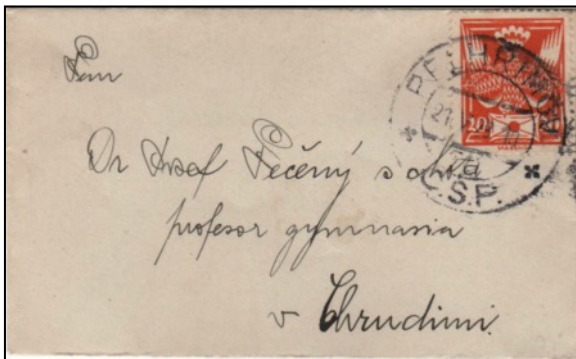 Pan
Dr Josef Pečený s chotí
profesor gymnasia
v Chrudimi.
PELHŘIMOV
20
Č.S.P.